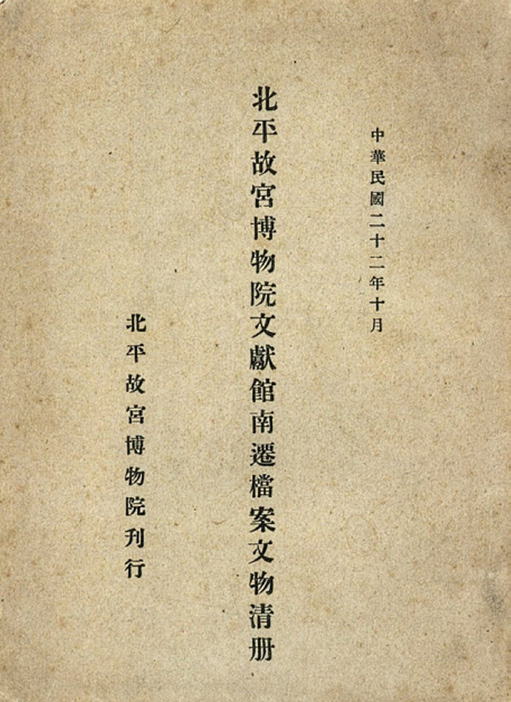 中華民國二十二年十月
北平故宮博物院文獻館南遷檔案文物清册
北平故宮博物院刊行